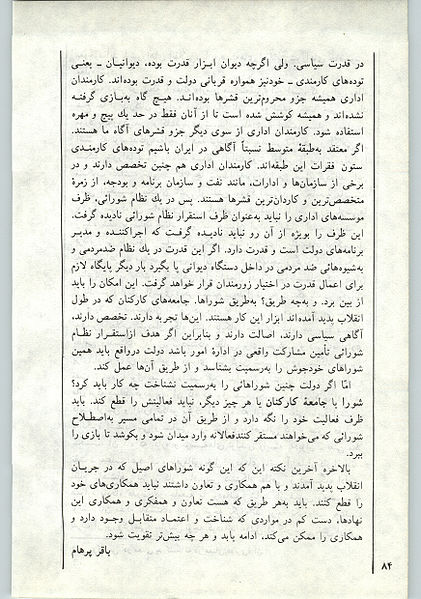 در قدرت سیاسی. ولی اگرچه دیوان ابزار قدرت بوده، دیوانیان ـ یعنی
توده‌های کارمندی ـ خودنیز همواره قربانی دولت و قدرت بوده‌اند. کارمندان
اداری همیشه جزو محروم‌ترین قشرها بوده‌اند. هیچ گاه به‌بازی گرفته
نشده‌اند و همیشه کوشش شده است تا از آنان فقط در حد یك پیچ و مهره
استفاده شود. کارمندان اداری از سوی دیگر جزو قشرهای آگاه ما هستند.
اگر معتقد به‌طبقهٔ متوسط نسبتاً آگاهی در ایران باشیم توده‌های کارمندی
ستون فقرات این طبقه‌اند. کارمندان اداری هم چنین تخصص دارند و در
برخی از سازمان‌ها و ادارات، مانند نفت و سازمان برنامه و بودجه، از زمرهٔ
متخصص‌ترین و کاردان‌ترین قشرها هستند. پس در یك نظام شورائی، ظرف
موسسه‌های اداری را نباید به‌عنوان ظرف استقرار نظام شورائی نادیده گرفت.
این ظرف را بویژه از آن رو نباید نادیده گرفت که اجراکننده و مدیر
برنامه‌های دولت است و قدرت دارد. اگر این قدرت در یك نظام ضدمردمی و
به‌شیوه‌هائی ضد مردمی در داخل دستگاه دیوانی پا بگیرد بار دیگر پایگاه لازم
برای اعمال قدرت در اختیار زورمندان قرار خواهد گرفت. این امکان را باید
از بین برد. و به‌چه طریق؟ به‌طریق شوراها. جامعه‌های کارکنان که در طول
انقلاب پدید آمده‌اند ابزار این کار هستند. این‌ها تجربه دارند. تخصص دارند،
آگاهی سیاسی دارند، اصالت دارند و بنابراین اگر هدف ازاستقرار نظام
شورائی تأمین مشارکت واقعی در ادارهٔ امور باشد دولت درواقع باید همین
شوراهای خودجوش را به‌رسمیت بشناسد و از طریق آن‌ها عمل کند.
امّا اگر دولت چنین شوراهائی را به‌رسمیت نشناخت چه کار باید کرد؟
شورا یا جامعهٔ کارکنان یا هر چیز دیگر، نباید فعالیتش را قطع کند. باید
ظرف فعالیت خود را نگه دارد و از طریق آن در تمامی مسیر به‌اصطلاح
شورائی که می‌خواهند مستقر کنندفعالانه وارد میدان شود و بکوشد تا بازی را
ببرد.
بالاخره آخرین نکته این که این گونه شوراهای اصیل که در جریان
انقلاب پدید آمدند و با هم همکاری و تعاون داشتند نباید همکاری‌های خود
را قطع کنند. باید به‌هر طریق که هست تعاون و همفکری و همکاری این
نهادها، دست کم در مواردی که شناخت و اعتماد متقابل وجود دارد و
همکاری را ممکن می‌کند، ادامه یابد و هر چه بیش‌تر تقویت شود.
باقر پرهام
۸۴